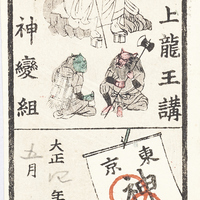 上龍王講
神變組
大正四年
五月
東京
神